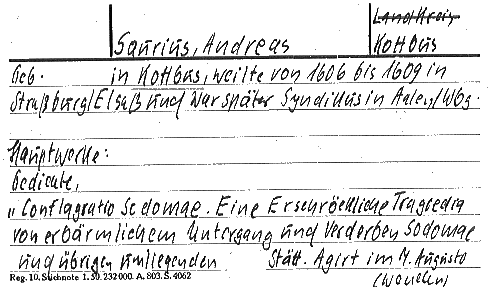 Landkreis
Saurius, Andreas Kottbus
Geb. in Kottbus, weilte von 1606 bis 1609 in
Straßburg/Elsaß und war später Syndikus in Aalen/Wbg.
Hauptwerke:
Gedichte,
„Conflagratio Sodomae. Eine Erschröckliche Tragoedia
von erbärmlichem Untergang und Verderben Sodomae
und übrigen umliegenden Stätt. Agirt im M. Augusto
Reg. 10. Suchnote 1. 50. 232000. A. 803. S. 4062